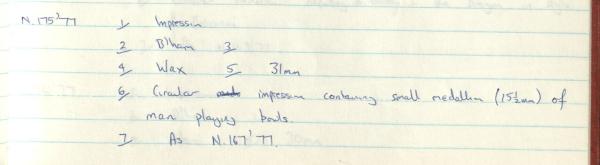 N.175'77 1 Impression
2 B'ham 3
4 Wax 5 31mm
6 Circular impression containing small medallion (15½mm) of
man playing bowls.
7 As N.167'77.